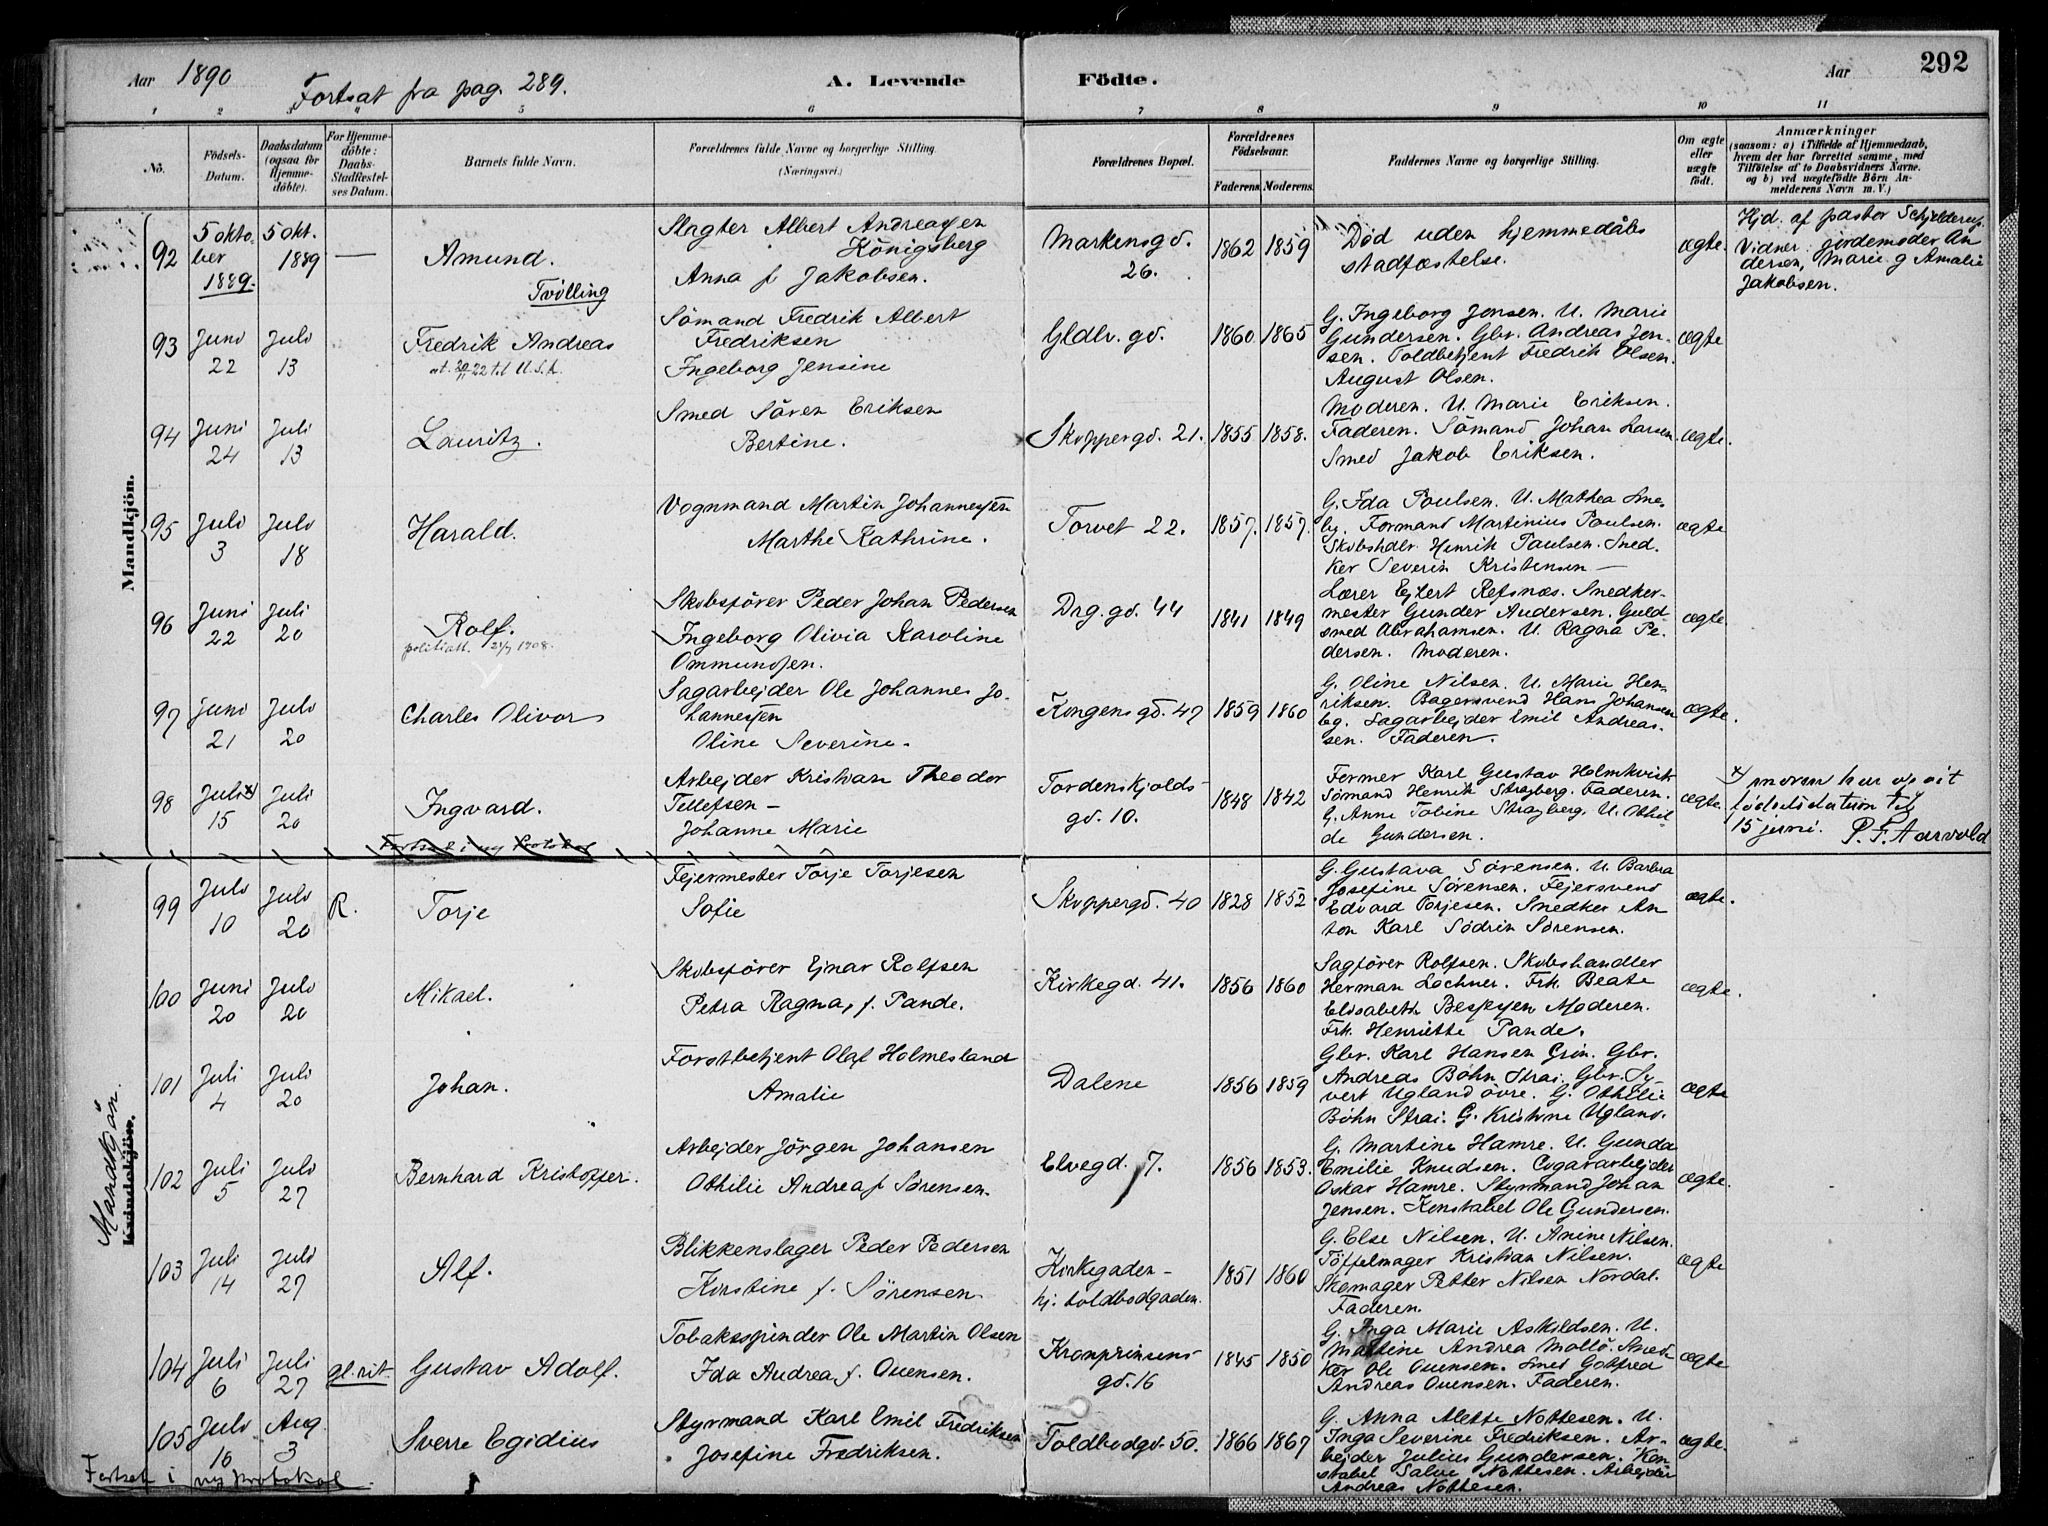 Aar 1890 Fortsat fra pag. 289. A. Levende Födte. Aar 292
1 2 3 4 5 6 7 8 9 10 11
No. Födsels-Datum. Daabsdatum (ogsaa for Hjemmedöbte). For Hjemmedöbte: Daabs-Stadfæstelses Datum. Barnets fulde Navn. Forældrenes fulde Navne og borgerlige Stilling. (Næringsvei.) Forældrenes Bopæl. Forældrenes Födselsaar. Faderens. Moderens. Faddernes Navne og borgerlige Stilling. Om ægte eller uægte födt. Anmærkninger (saasom: a) i Tilfælde af Hjemmedaab, hvem der har forrettet samme, med Tilföielse af to Daabsvidners Navne. og b) ved uægtefödte Börn Anmelderens Navn m. V.)
Mandkjön.
92 5 oktober 1889. 5 okt. 1889 — Amund. Tvilling
Slagter Albert Andreassen Königsberg
Anna f. Jakobsen.
Markensgd. 26. 1862 1859
Död uden hjemmedåbs
stadfæstelse.
ægte.
Hjd. af pastor Schjelderup.
Vidner: jordemoder An
dersen, Marie og Amalie
Jakobsen.
93 Juni 22 Juli 13 Fredrik Andreas
att. 20/11 22 til U.S.A.
Sömand Fredrik Albert
Fredriksen
Ingeborg Jensine
Gldlv. gd. 1860 1865
G. Ingeborg Jensen. U. Marie
Gundersen. Gbr. Andreas Jen-
sen. Toldbetjent Fredrik Olsen.
August Olsen.
ægte
94 Juni 24 Juli 13 Lauritz.
Smed Sören Eriksen
Bertine.
Skippergd. 21. 1855 1858.
Moderen. U. Marie Eriksen.
Faderen. Sömand Johan Larsen
Smed Jakob Eriksen.
ægte.
95 Juli 3 Juli 18 Harald.
Vognmand Martin Johannessen
Marthe Kathrine.
Torvet 22. 1857. 1857.
G. Ida Poulsen. U. Mathea Sme-
by. Formand Martinius Poulsen.
Skibshdlr. Henrik Paulsen. Sned.
ker Severin Kristensen —
ægte
96 Juni 22 Juli 20 Rolf.
politiatt. 21/7 1908.
Skibsförer Peder Johan Pedersen
Ingeborg Olivia Karoline
Ommundsen.
Drg. gd. 44 1841 1849
Lærer Ejlert Refsnæs. Snedker-
mester Gunder Andersen. Guld
smed Abrahamsen. U. Ragna Pe-
dersen. Moderen.
ægte
97 juni 21 Juli 20 Charles Olivor
Sagarbejder Ole Johannes Jo-
hannessen
Oline Severine.
Kongensgd. 47 1859 1860
G. Oline Nilsen. U. Marie Hen-
riksen. Bagersvend Hans Johansen
bg. Sagarbejder Emil Andreas-
sen. Faderen.
ægte.
98 Juli x) 15 Juli 20 Ingvard.
Arbejder Kristian Theodor
Tellefsen —
Johanne Marie
Tordenskjolds-
gd. 10. 1848 1842
Former Karl Gustav Holmkvist
Sömand Henrik Strayberg. Faderen.
G. Anne Tobine Strayberg. U. Othil-
de Gundersen.
ægte.
x) moren har opgit
födselsdatum til
15 juni. P. F. Aarvold
Fortsat i ny Protokol
Mandkjön.
Kvindekjön.
99 Juli 10 Juli 20 R. Torje
Fejermester Torje Torjesen
Sofie
Skippergd. 40 1828 1852
G. Gustava Sørensen. U. Barbra
Josefine Sørensen. Fejersvend
Edvard Torjesen. Snedker An
ton Karl Södrin Sørensen.
ægte.
100 Juni 20 Juli 20 Mikael.
Skibsförer Ejnar Rolfsen
Petra Ragna, f. Pande.
Kirkegd. 41. 1856 1860
Sagförer Rolfsen. Skibshandler
Herman Lochner. Frk. Beate
Elisabeth Moderen.
Frk. Henriette Pande.
ægte.
101 Juli 4 Juli 20 Johan.
Forstbetjent Olaf Holmesland
Amalie
Dalene 1856 1859
Gbr. Karl Hansen Grim. Gbr.
Andreas Böhn Strai. Gbr. Sy-
vert Ugland övre. G. Othilie
Böhn Strai. G. Kristine Ugland.
ægte
102 Juli 5 Juli 27 Bernhard Kristoffer.
Arbejder Jörgen Johansen
Othilie Andrea f. Sørensen.
Elvegd. 7. 1856 1853.
G. Martine Hamre. U. Gunda
Emilie Knudsen. Cigararbejder
Oskar Hamre. Styrmand Johan
Jensen. Konstabel Ole Gundersen.
ægte.
103 Juli 14 Juli 27 Alf.
Blikkenslager Peder Pedersen
Kirstine f. Sørensen
Kirkegaden-
hj. toldbodgaden. 1851 1860
G. Else Nilsen. U. Anine Nilsen.
Töffelmager Kristian Nilsen.
Skomager Petter Nilsen Nordal.
Faderen.
ægte
104 Juli 6 Juli 27 gl. rit. Gustav Adolf.
Tobaksspinder Ole Martin Olsen
Ida Andrea f. Ouensen.
Kronprinsens
gd. 16 1845 1850
G. Inga Marie Askildsen. U.
Martine Andrea Mollö. Sned-
ker Ole Ouensen. Smed Gotfred
Andreas Ouensen. Faderen.
ægte
105 Juli 16 Aug. 3 Sverre Egidius
Styrmand Karl Emil Fredriksen
Josefine Fredriksen.
Toldbodgd. 50. 1866 1867
G. Anna Alette Nottesen. U.
Inga Severine Fredriksen. Ar-
bejder Julius Gundersen. Kon
stabel Salve Nottesen. Arbejder
Andreas Nottesen.
ægte.
Fortsat i ny protokol.